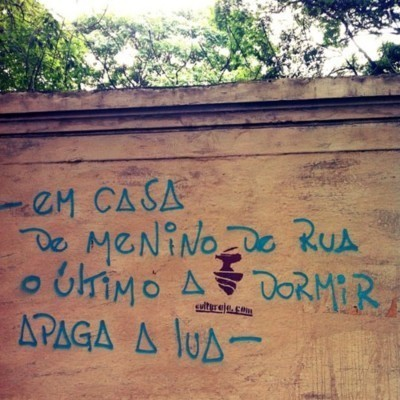 — EM CASA
DE MENINO DE RUA
O ÚLTIMO A DORMIR
culturele.com
APAGA A LUA —